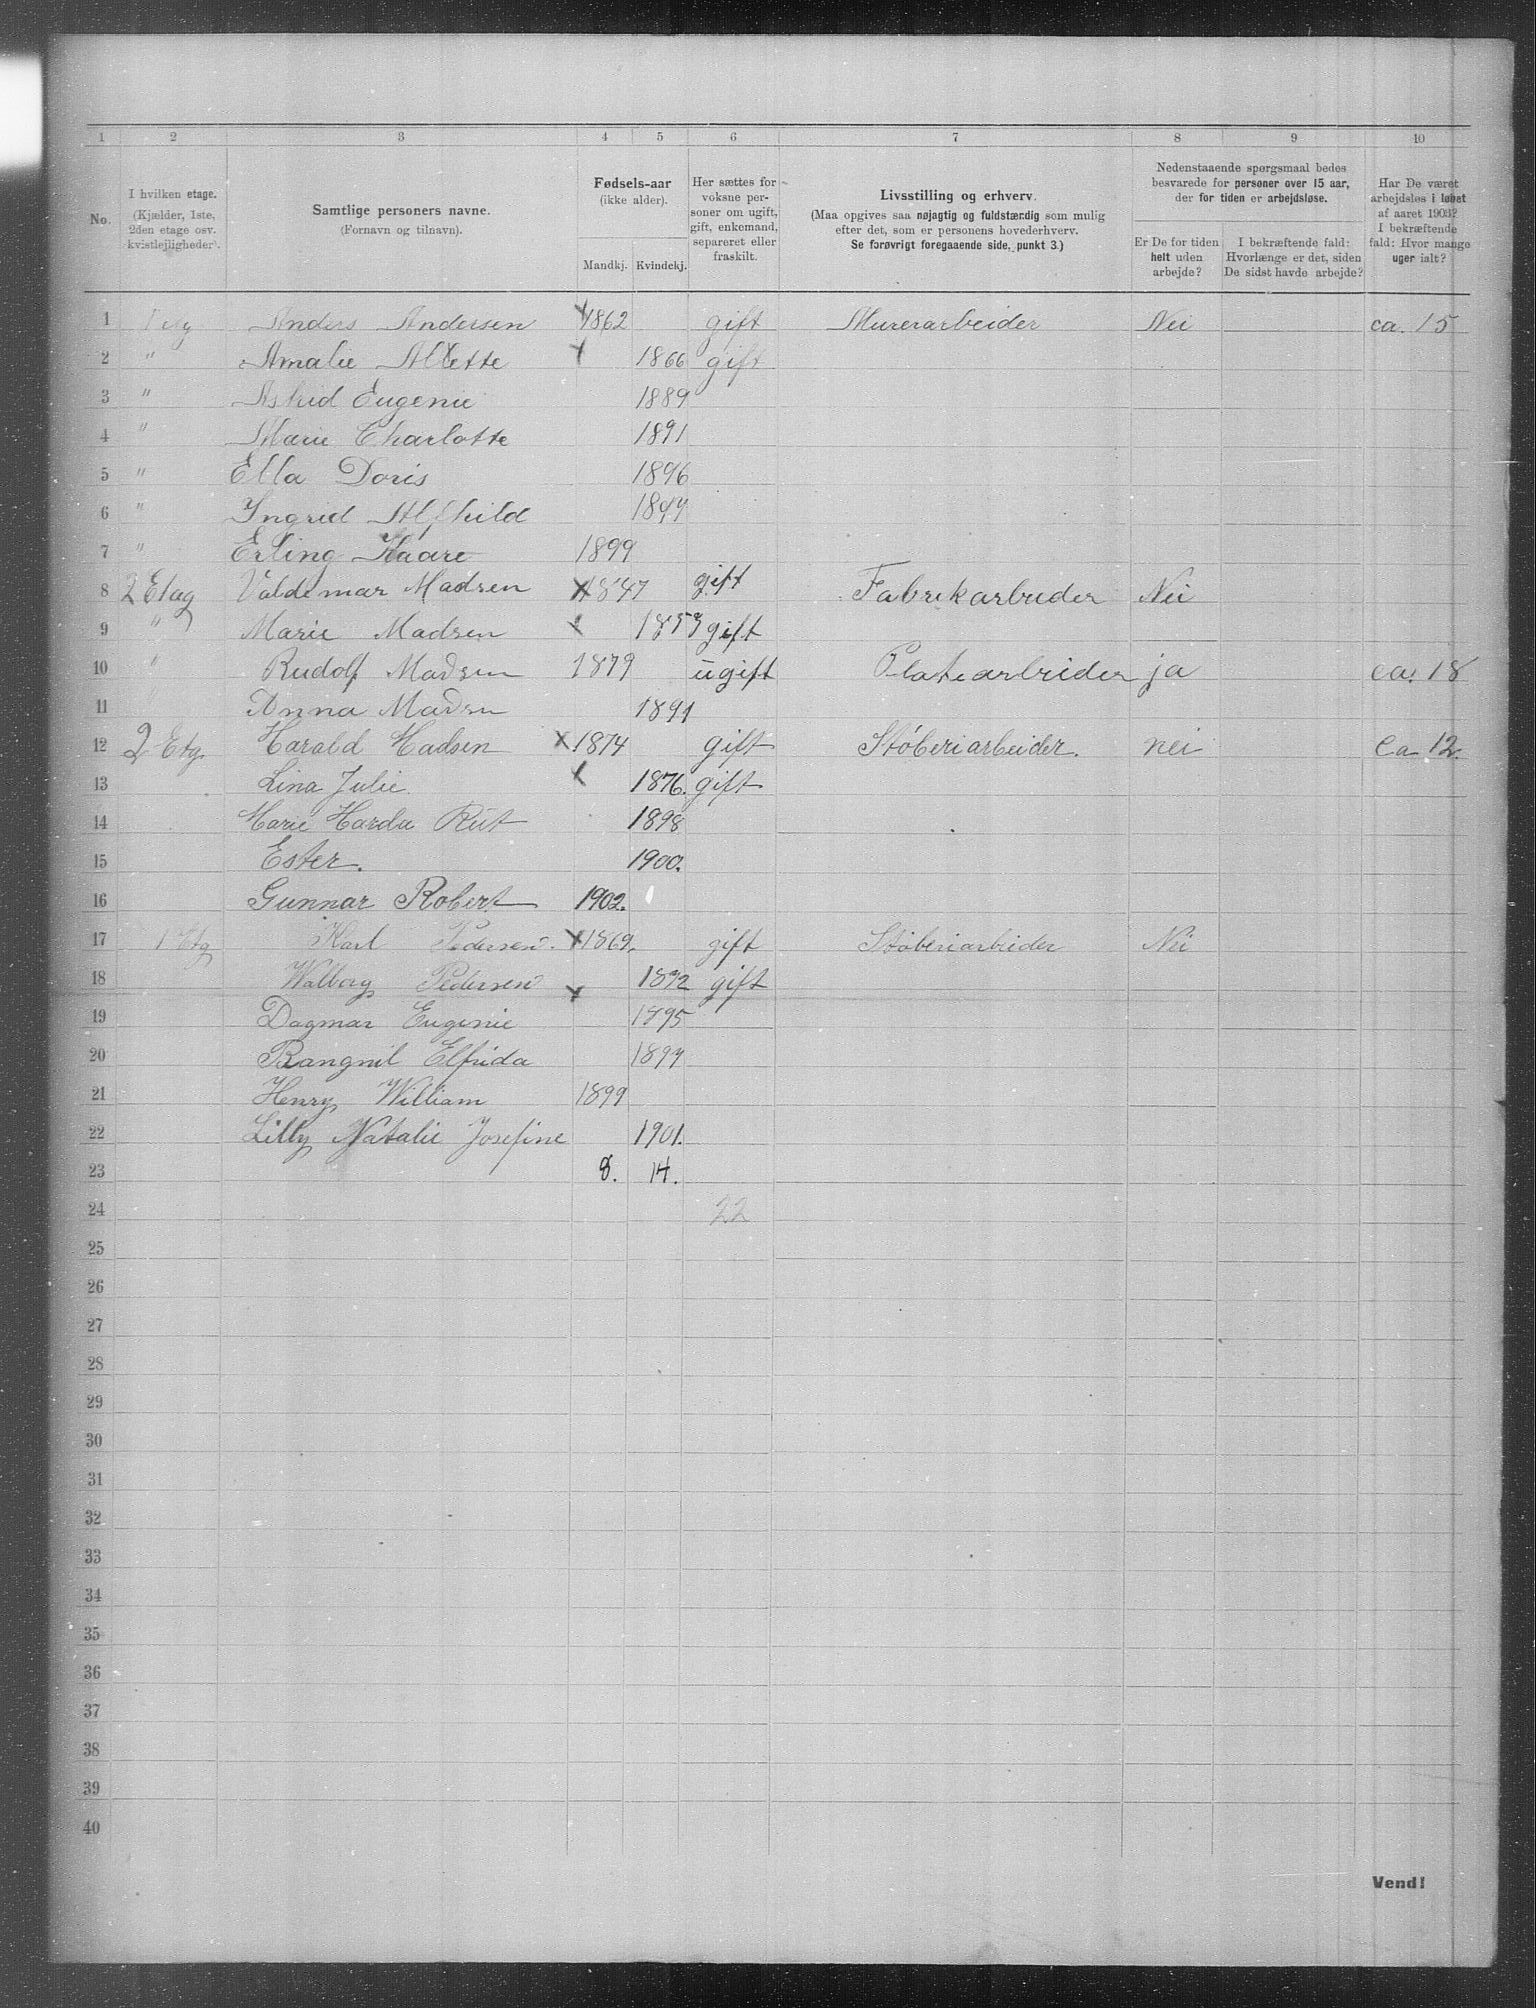 1 2 3 4 5 6 7 8 9 10
No.
I hvilken etage.
(Kjælder, 1ste,
2den etage osv.
kvistlejligheder).
Samtlige personers navne.
(Fornavn og tilnavn).
Fødsels-aar
(ikke alder).
Mandkj. Kvindekj.
Her sættes for
voksne per-
soner om ugift,
gift, enkemand,
separeret eller
fraskilt.
Livsstilling og erhverv.
(Maa opgives saa nøjagtig og fuldstændig som mulig
efter det, som er personens hovederhverv.
Se forøvrigt foregaaende side, punkt 3.)
Nedenstaaende spørgsmaal bedes
besvarede for personer over 15 aar,
der for tiden er arbejdsløse.
Er De for tiden
helt uden
arbejde?
I bekræftende fald:
Hvorlænge er det, siden
De sidst havde arbejde?
Har De været
arbejdsløs i løbet
af aaret 1903?
I bekræftende
fald: Hvor mange
uger ialt?
1 1 etg Anders Andersen 1862 gift Murerarbeider Nei ca. 15
2 " Amalie Alette 1866 gift
3 " Astrid Eugenie 1889
4 " Marie Charlotte 1891
5 " Ella Doris 1896
6 " Ingrid Alfhild
7 " Erling Kaare 1899
8 2 Etag Valdemar Madsen x 1847 gift Fabrikarbeider Nei
9 " Marie Madsen 1853 gift
10 " Rudolf Madsen 1879 ugift Platearbeider ja ca. 18
11 Anna Madsen 1891
12 2 Etg. Harald Madsen x 1874 gift Støberiarbeider. nei Ca 12.
13 Lina Julie 1876. gift
14 Marie Harda Rut 1898
15 Ester. 1900.
16 Gunnar Robert 1902.
17 1 Etg Karl Pedersen. x 1869. gift Støberiarbeider Nei
18 Walborg Pedersen x 1872 gift
19 Dagmar Eugenie 1895
20 Rangnil Elfrida 1897
21 Henry William 1899
22 Lilly Natalie Josefine 1901.
23 8. 14.
24 22
25
26
27
28
29
30
31
32
33
34
35
36
37
38
39
40
Vend!